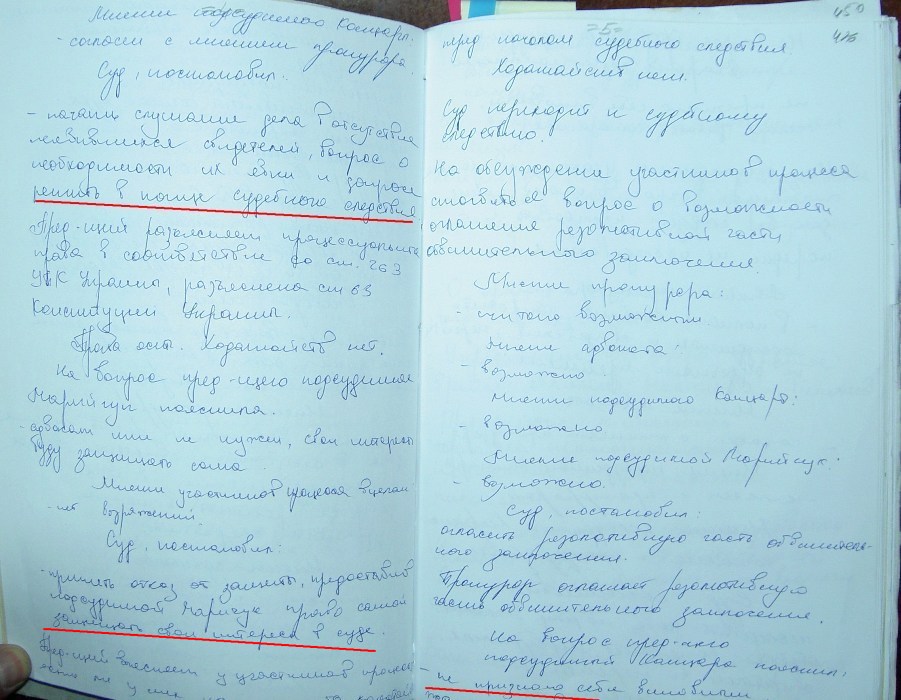 Мнение подсудимого Кашкаров.
- согласен с мнением прокурора.
Суд, постановил.
- начать слушание дела в отсутствие
неявившихся свидетелей, вопрос о
необходимости их явки и допроса
решить в конце судебного следствия
Пред-щий разъясняет процессуальные
права в соответствие со ст. 263
УПК Украины, разъяснена ст 63
Конституции Украины.
Права ясны. Ходатайств нет.
На вопрос пред-щего подсудимая
пояснила.
- адвокат мне не нужен, свои интересы
буду защищать сама
Мнение участников процесса
- нет возражений.
Суд, постановил:
- принять отказ от защиты, предоставив
подсудимой право самой
защищать свои интересы в суде.
Пред-щий выясняет у участников процесса
450
250
426
перед началом судебного следствия
Ходатайств нет.
Суд переходит к судебному
следствию.
На обсуждение участников процесса
ставиться вопрос о возможности
оглашения резолютивной части
обвинительного заключения.
Мнение прокурора:
- считаю возможным
мнение адвоката:
- возможно
мнение подсудимого
- возможно
Мнение подсудимой
- возможно.
Суд, постановил:
огласить резолютивную часть обвинитель-
ного заключения.
Прокурор оглашает резолютивную
часть обвинительного заключения.
На вопрос пред-щего
подсудимый пояснил,
- не признаю себя виновным